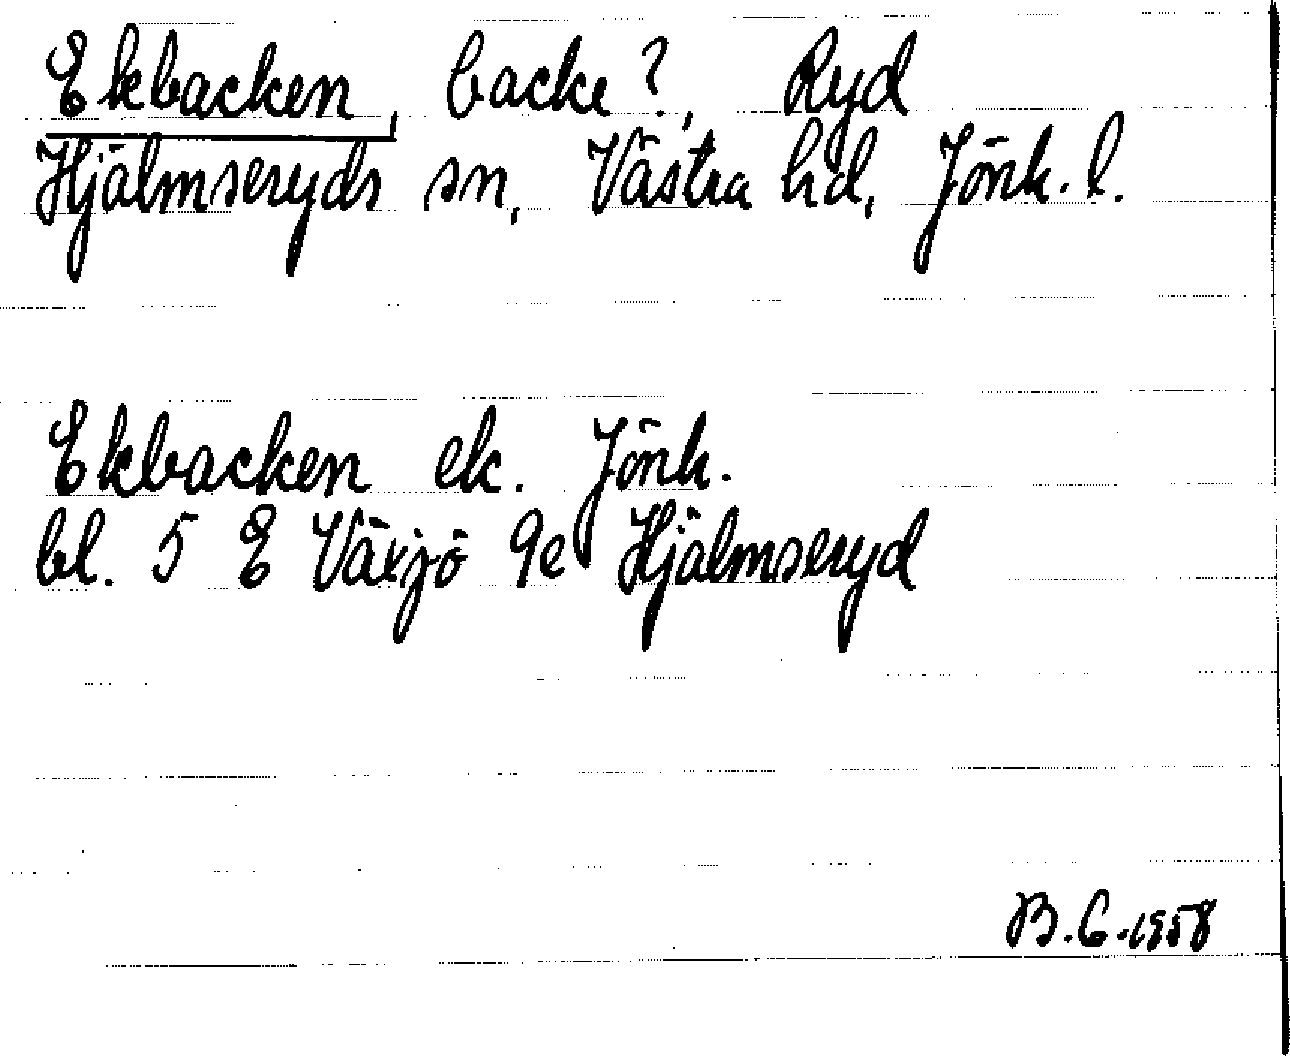 Ekbacken, backe?, Ryd
Hjälmseryds sn, Västra hd, Jönk. l.
Ekbacken ek. Jönk.
bl. 5 E Växjö 9e Hjälmseryd
B.G.1958